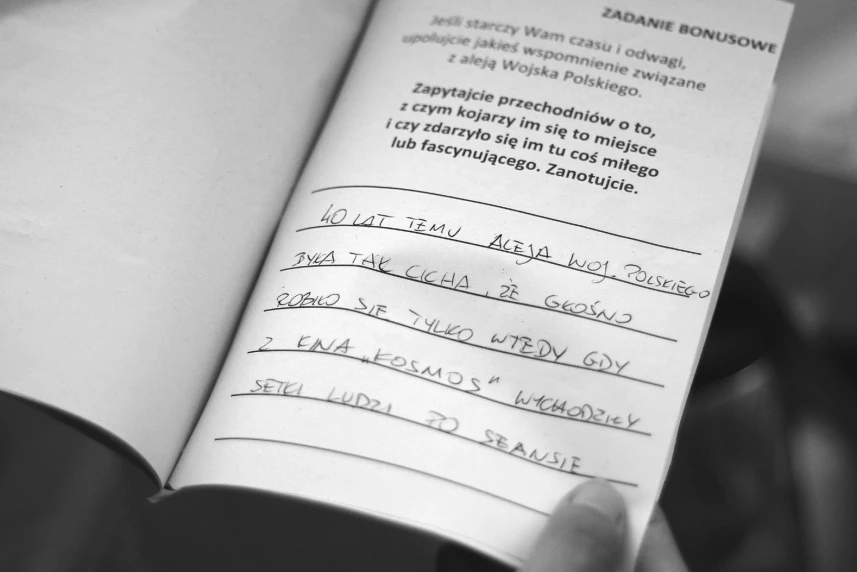 ZADANIE BONUSOWE
Jeśli starczy Wam czasu i odwagi,
upolujcie jakieś wspomnienie związane
z aleją Wojska Polskiego.
Zapytajcie przechodniów o to,
z czym kojarzy im się to miejsce
i czy zdarzyło się im tu coś miłego
lub fascynującego. Zanotujcie.
40 LAT TEMU ALEJA WOJ. POLSKIEGO
BYŁA TAK CICHA, ŻE GŁOŚNO
ROBIŁO SIĘ TYLKO WTEDY GDY
Z KINA „KOSMOS" WYCHODZIŁY
SETKI LUDZI PO SEANSIE